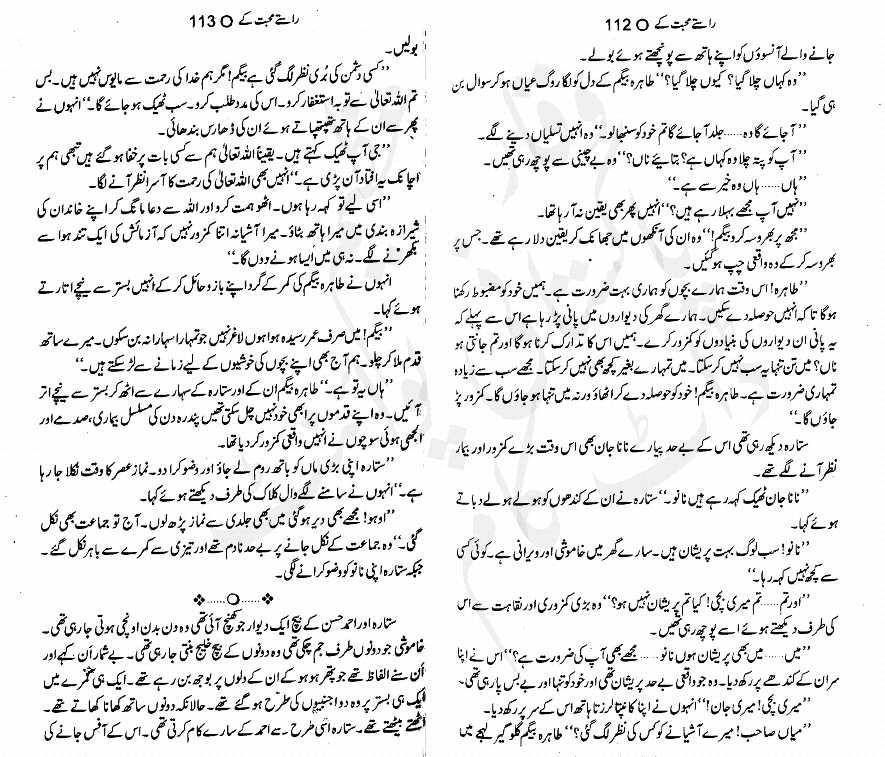 راستے محبت کے O 112
جانے والے آنسوؤں کو اپنے ہاتھ سے پونچھتے ہوئے بولے۔
’’وہ کہاں چلا گیا؟ کیوں چلا گیا؟‘‘ طاہرہ بیگم کے دل کو لگا روگ عیاں ہو کر سوال بن
ہی گیا۔
’’آ جائے گا وہ......جلد آ جائے گا تم خود کو سنبھالو۔‘‘ وہ انہیں تسلیاں دینے لگے۔
’’آپ کو پتہ چلا وہ کہاں ہے؟ بتائیے ناں؟‘‘ وہ بے چینی سے پوچھ رہی تھیں۔
’’ہاں......ہاں وہ خیر سے ہے۔‘‘
’’نہیں آپ مجھے بہلا رہے ہیں؟‘‘ انہیں پھر بھی یقین نہ آ رہا تھا۔
’’مجھ پر بھروسہ کرو بیگم!‘‘ وہ ان کی آنکھوں میں جھانک کر یقین دلا رہے تھے۔ جس پر
بھروسہ کر کے وہ واقعی چپ ہو گئیں۔
’’طاہرہ! اس وقت ہمارے بچوں کو ہماری بہت ضرورت ہے۔ ہمیں خود کو مضبوط رکھنا
ہو گا تاکہ انہیں حوصلہ دے سکیں۔ ہمارے گھر کی دیواروں میں پانی پڑ رہا ہے اس سے پہلے کہ
یہ پانی ان دیواروں کی بنیادوں کو کمزور کرے۔ ہمیں اس کا تدارک کرنا ہو گا اور تم جانتی ہو
ناں؟ میں تن تنہا یہ سب نہیں کر سکتا۔ میں تمہارے بغیر کچھ بھی نہیں کر سکتا۔ مجھے سب سے زیادہ
تمہاری ضرورت ہے۔ طاہرہ بیگم! خود کو حوصلہ دے کر اٹھاؤ ورنہ میں تنہا ہو جاؤں گا۔ کمزور پڑ
جاؤں گا۔‘‘
ستارہ دیکھ رہی تھی اس کے بے حد پیارے نانا جان بھی اس وقت بڑے کمزور اور بیمار
نظر آنے لگے تھے۔
’’نانا جان ٹھیک کہہ رہے ہیں نانو۔‘‘ ستارہ نے ان کے کندھوں کو ہولے ہولے دباتے
ہوئے کہا۔
’’نانو! سب لوگ بہت پریشان ہیں۔ سارے گھر میں خاموشی اور ویرانی ہے۔ کوئی کسی
سے کچھ نہیں کہہ رہا۔‘‘
’’اور تم......تم میری بچی! کیا تم پریشان نہیں ہو؟‘‘ وہ بڑی کمزوری اور نقاہت سے اس
کی طرف دیکھتے ہوئے اسے پوچھ رہی تھیں۔
’’میں......میں بھی پریشان ہوں نانو......مجھے بھی آپ کی ضرورت ہے؟‘‘ اس نے اپنا
سر ان کے کندھے پر رکھ دیا۔ وہ جو واقعی بے حد پریشان تھی اور خود کو تنہا اور بے بس پا رہی تھی۔
’’میری بچی! میری جان!‘‘ انہوں نے اپنا کانپتا لرزتا ہاتھ اس کے سر پر رکھ دیا۔
’’میاں صاحب! میرے آشیانے کو کس کی نظر لگ گئی؟‘‘ طاہرہ بیگم گلو گیر لہجے میں
راستے محبت کے O 113
بولیں۔
’’کسی دشمن کی بُری نظر لگ گئی ہے بیگم! مگر ہم خدا کی رحمت سے مایوس نہیں ہیں۔ بس
تم اللہ تعالیٰ سے توبہ استغفار کرو۔ اس کی مدد طلب کرو۔ سب ٹھیک ہو جائے گا۔‘‘ انہوں نے
پھر سے ان کے ہاتھ تھپتھپاتے ہوئے ان کی ڈھارس بندھائی۔
’’جی آپ ٹھیک کہتے ہیں۔ یقیناً اللہ تعالیٰ ہم سے کسی بات پر خفا ہو گئے ہیں تبھی ہم پر
اچانک یہ افتاد آن پڑی ہے۔‘‘ انہیں بھی اللہ تعالیٰ کی رحمت کا آسرا نظر آنے لگا۔
’’اسی لیے تو کہہ رہا ہوں۔ اٹھو ہمت کرو اور اللہ سے دعا مانگ کر اپنے خاندان کی
شیرازہ بندی میں میرا ہاتھ بٹاؤ۔ میرا آشیانہ اتنا کمزور نہیں کہ آزمائش کی ایک تند ہوا سے
بکھرنے لگے۔ نہ ہی میں ایسا ہونے دوں گا۔‘‘
انہوں نے طاہرہ بیگم کی کمر کے گرد اپنے بازو حائل کر کے انہیں بستر سے نیچے اتارتے
ہوئے کہا۔
’’بیگم! میں صرف عمر رسیدہ ہوا ہوں لاغر نہیں جو تمہارا سہارا نہ بن سکوں۔ میرے ساتھ
قدم ملا کر چلو۔ ہم آج بھی اپنے بچوں کی خوشیوں کے لیے زمانے سے لڑ سکتے ہیں۔‘‘
’’ہاں یہ تو ہے۔‘‘ طاہرہ بیگم ان کے اور ستارہ کے سہارے سے اٹھ کر بستر سے نیچے اتر
آئیں۔ وہ اپنے قدموں پر ابھی خود نہیں چل سکتی تھیں پندرہ دن کی مسلسل بیماری، صدمے اور
الجھی ہوئی سوچوں نے انہیں واقعی کمزور کر دیا تھا۔
’’ستارہ اپنی بڑی ماں کو باتھ روم لے جاؤ اور وضو کرا دو۔ نماز عصر کا وقت نکلا جا رہا
ہے۔‘‘ انہوں نے سامنے لگے وال کلاک کی طرف دیکھتے ہوئے کہا۔
’’اوہو! مجھے بھی دیر ہو گئی میں بھی جلدی سے نماز پڑھ لوں۔ آج تو جماعت بھی نکل
گئی۔‘‘ وہ جماعت کے نکل جانے پر بے حد نادم تھے اور تیزی سے کمرے سے باہر نکل گئے۔
جبکہ ستارہ اپنی نانو کو وضو کرانے لگی۔
❖......O......❖
ستارہ اور احمد حسن کے بیچ ایک دیوار جو کھنچ آئی تھی وہ دن بدن اونچی ہوتی جا رہی تھی۔
خاموشی جو دونوں طرف جم چکی تھی وہ دونوں کے بیچ خلیج بنتی جا رہی تھی۔ بے شمار اَن کہے اور
اَن سنے الفاظ تھے جو پتھر ہو ہو کے ان کے دلوں پر بوجھ بن رہے تھے۔ ایک ہی کمرے میں
ایک ہی بستر پر وہ دو اجنبیوں کی طرح ہو گئے تھے۔ حالانکہ دونوں ساتھ کھانا کھاتے تھے۔
اٹھتے بیٹھتے تھے۔ ستارہ اسی طرح سے احمد کے سارے کام کرتی تھی۔ اس کے آفس جانے کی